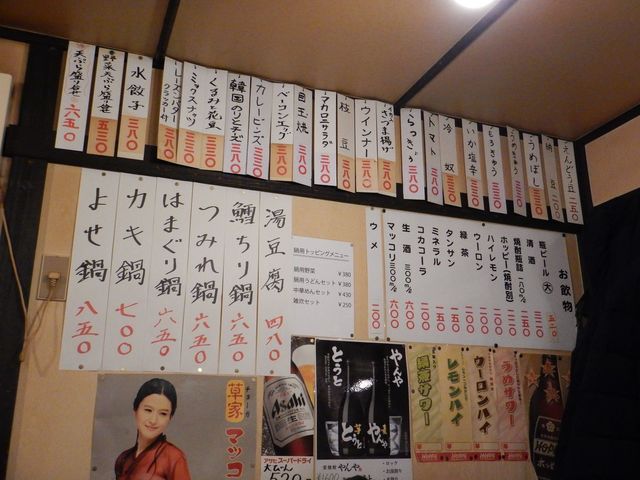 えんどう豆 二五〇
納豆 二〇〇
うめぼし
もろきゅう
いか塩辛
冷奴
トマト 三八〇
らっきょう 三八〇
さつま揚げ
ウインナー 三八〇
枝豆 三八〇
マカロニサラダ 三八〇
目玉焼
ベーコンエッグ
カレービーンズ
韓国のりとチーズ 三八〇
くるみと花豆
ミックスナッツ
レーズンバター
クラッカー付
水餃子 三八〇
野菜天ぷら盛り合せ 五三〇
天ぷら盛り合せ 六五〇
お飲物
瓶ビール 大 五二〇
清酒 三二〇
焼酎瓶詰 一八〇%
ホッピー(焼酎別)
ハイレモン
ウーロン
緑茶
タンサン 一五〇
ミネラル 一五〇
コカコーラ 二〇〇
生酒 三〇〇% 六〇〇
マッコリ 三〇〇% 六〇〇
ウメ 一〇〇
鍋用トッピングメニュー
鍋用野菜 ¥380
鍋用うどんセット ¥380
中華めんセット ¥430
雑炊セット ¥250
湯豆腐 四八〇
鱈ちり鍋 六五〇
つみれ鍋 六五〇
はまぐり鍋 六五〇
カキ鍋 七〇〇
よせ鍋 八五〇
草家
マッコ
Asahi
アサヒスーパードライ
大びん
520
やんや
とうと
うめサワー
ウーロンハイ
レモンハイ
緑茶サワー